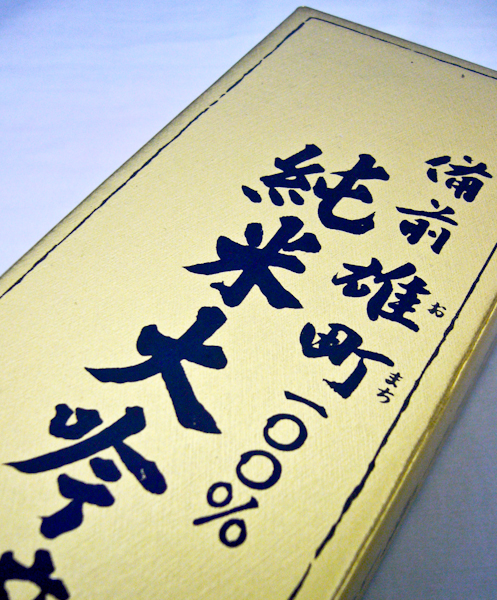 備前雄町一〇〇%
おまち
純米大吟